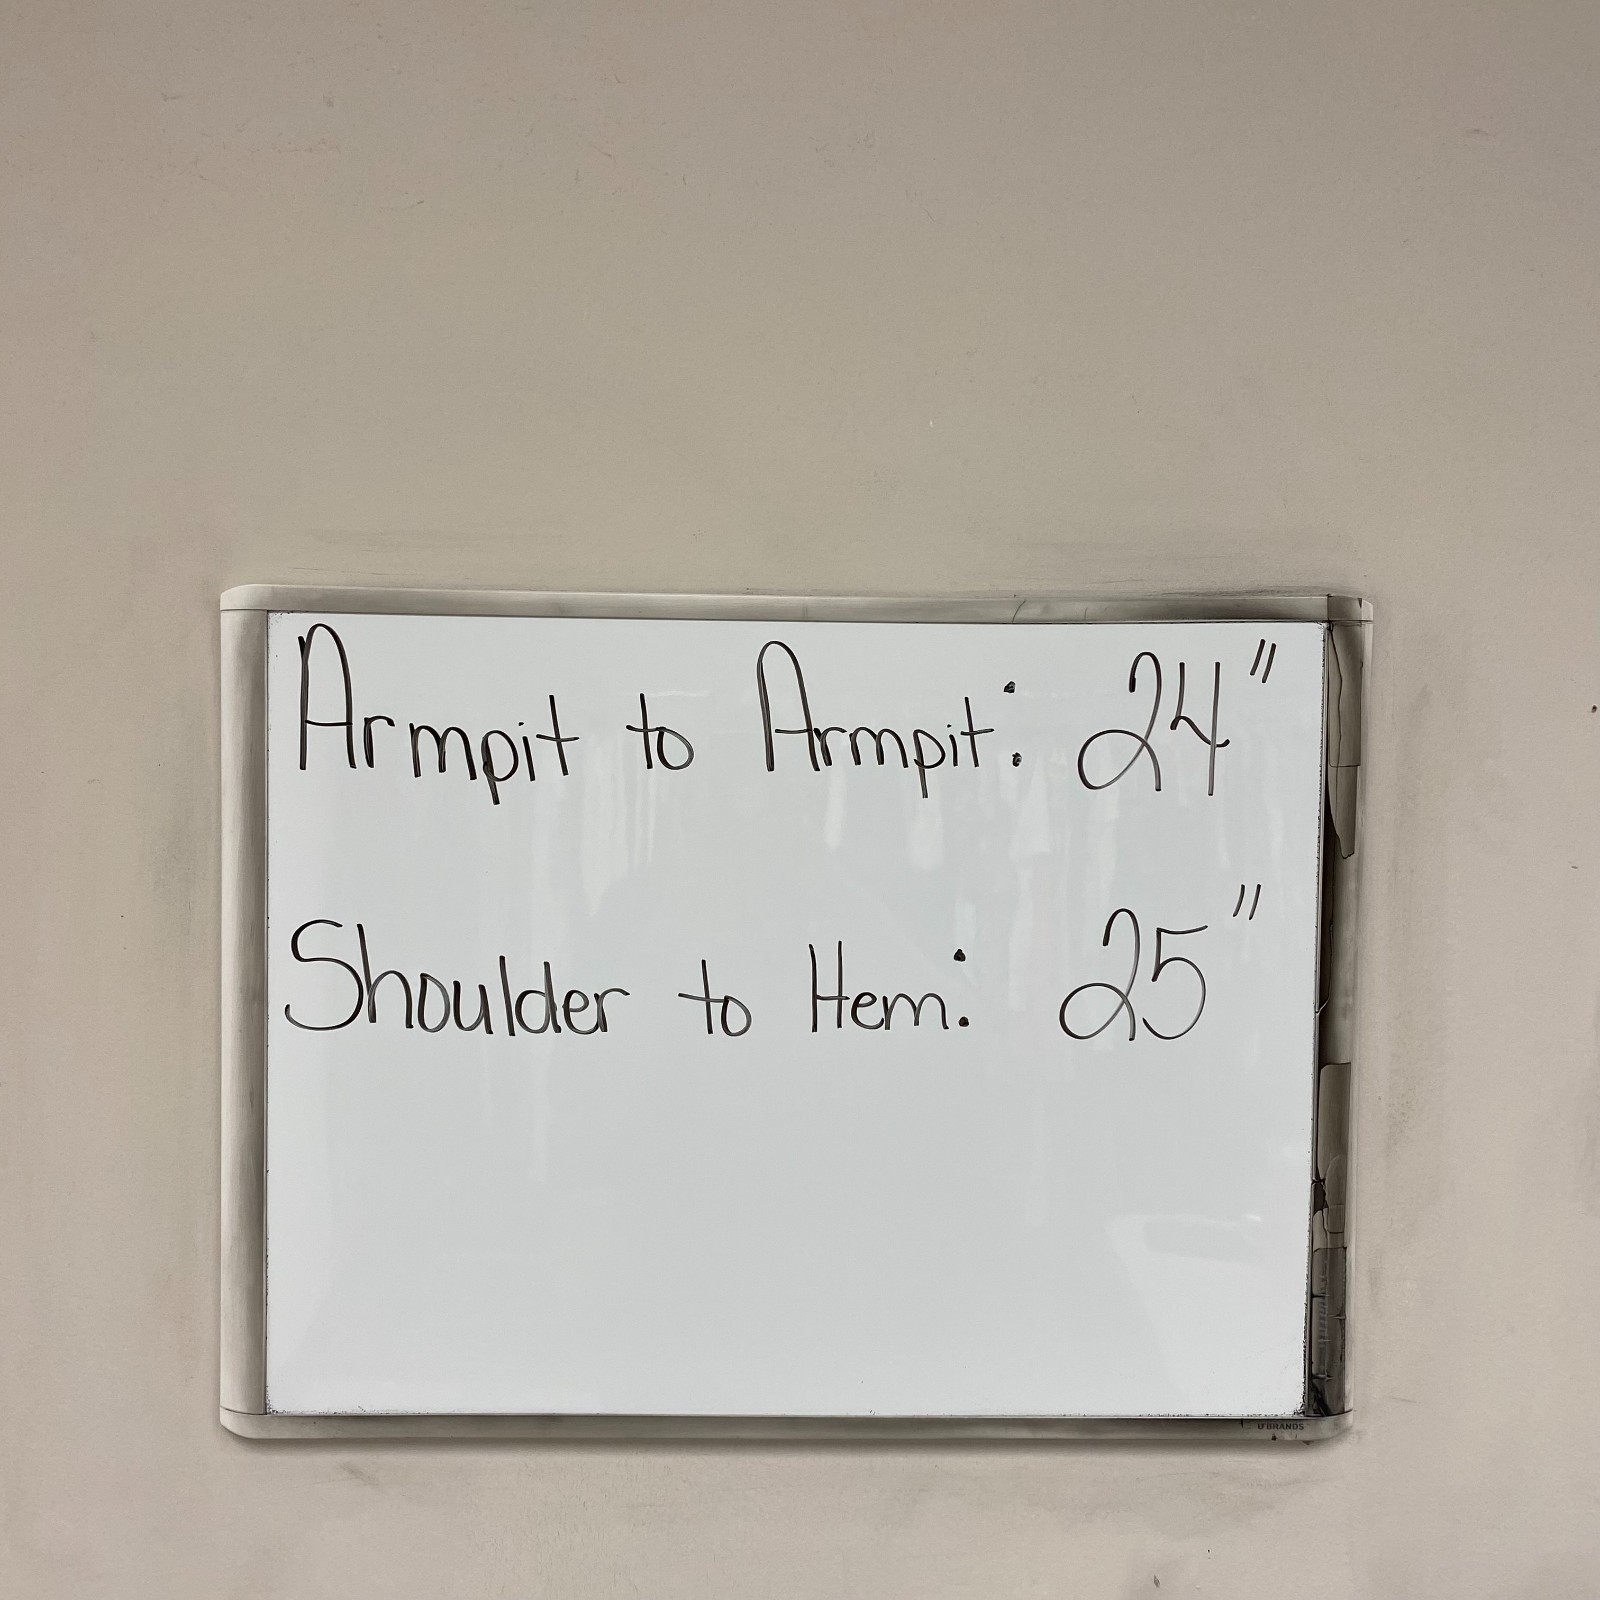 Armpit to Armpit: 24"
Shoulder to Hem: 25"